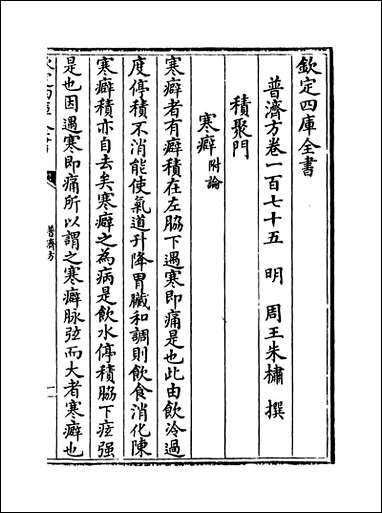 欽定四庫全書
普濟方卷一百七十五 明 周王朱橚 撰
積聚門
寒癖附論
寒癖者有癖積在左脇下遇寒即痛是也此由飲冷過
度停積不消能使氣道升降胃臟和調則飲食消化陳
寒癖積亦自去矣寒癖之為病是飲水停積脇下痃強
是也因遇寒即痛所以謂之寒癖脉弦而大者寒癖也
普濟方